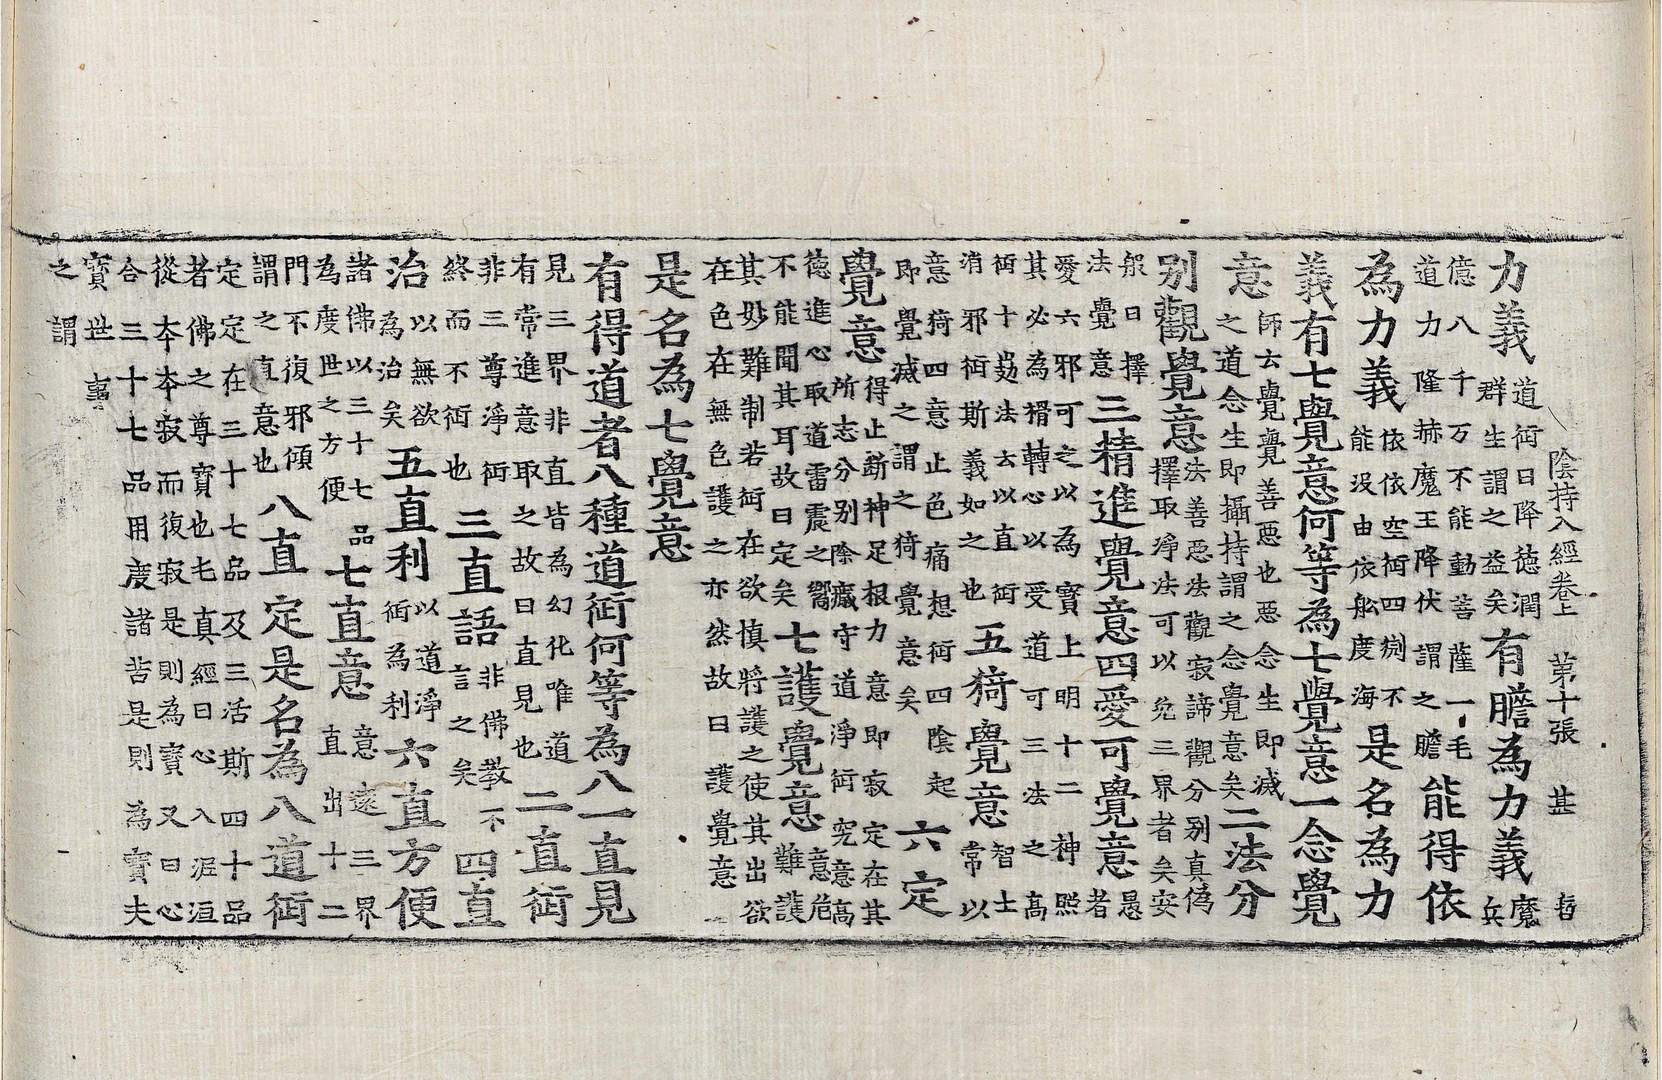 陰持入經卷上　第十張　甚
力義道術日降德潤群生謂之益矣有膽為力義魔兵
億八千万不能動菩薩一毛道力隆赫魔王降伏謂之膽能得依
為力義依依空術四㓨不能没由依舩度海是名為力
義有七覺意何等為七覺意一念覺
意師云覺覺善惡也惡念生即滅之道念生即攝持謂之念覺意矣二法分
别觀覺意法善惡法觀寂諦觀分别真偽擇取淨法可以免三界者矣安
般曰擇法覺意三精進覺意四愛可覺意愚者
愛六邪可之以為寳上明十二神照其必為禍轉心以受道可三法之高
術十㓨法去以直術消邪術斯義如之也五猗覺意智士常以
意猗四意止色痛想術四陰起即覺滅之謂之猗覺意矣六定
覺意得止斷神足根力意即寂定在其所志分别除癡守道淨術究意高
德進心取道雷震之響不能聞其耳故曰定矣七護覺意意危難護
其妙難制若術在欲慎將護之使其出欲在色在無色護之亦然故曰護覺意
是名為七覺意
有得道者八種道術何等為八一直見
見三界非非直皆為幻化唯道有常進意取之故曰直見也二直術
非三尊淨術終而不術也三直語非佛教不言之矣四直
治以無欲為治矣五直利以道淨術為利六直方便
諸佛以三十七品為度世之方便七直意意遠三界直出十二
門不復邪傾謂之直意也八直定是名為八道術
定定在三十七品及三活斯四十品者佛之尊寳也老真經曰心入泥洹
從夲夲寂而復寂是則為寳又曰心合三十七品用度諸苦是則為寳夫
寳世事之謂